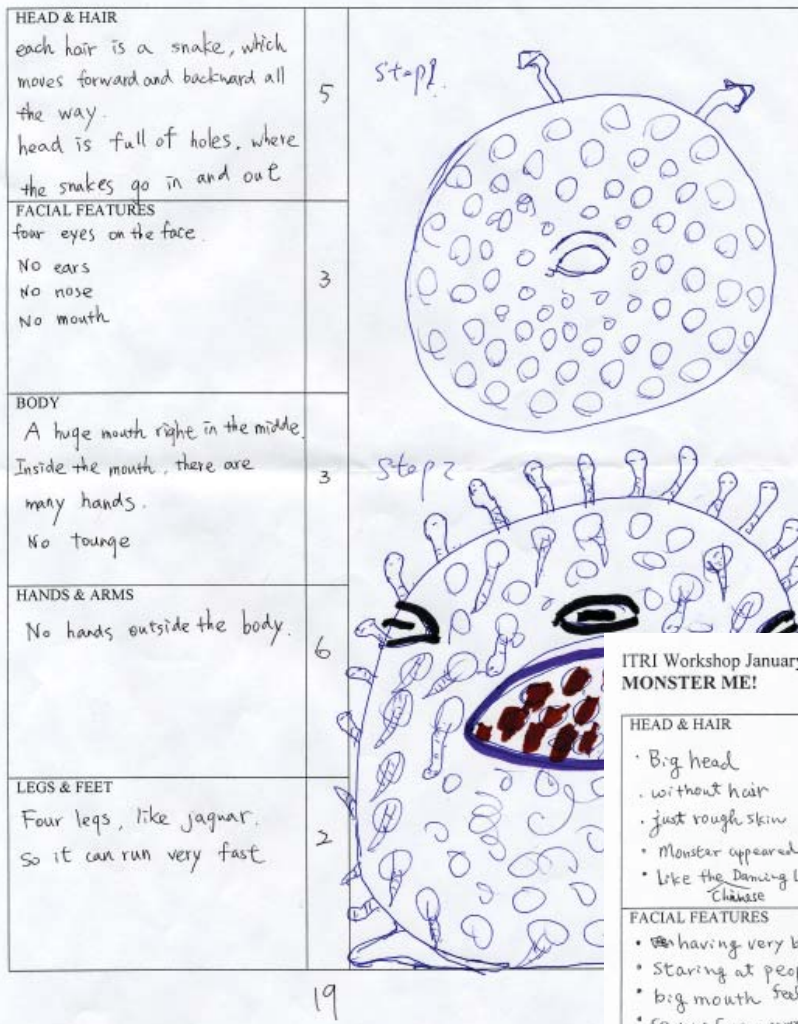 HEAD & HAIR
each hair is a snake, which
moves forward and backward all
the way.
head is full of holes, where
the snakes go in and out
5
FACIAL FEATURES
four eyes on the face.
No ears
No nose
No mouth
3
BODY
A huge mouth right in the midde.
Inside the mouth, there are
many hands.
No tounge
3
HANDS & ARMS
No hands outside the body.
6
LEGS & FEET
Four legs, like jaguar.
So it can run very fast
2
19
Step1.
Step2
ITRI Workshop January
MONSTER ME!
HEAD & HAIR
· Big head
· without hair
· just rough skin
• Monster appeared
• Like the Dancing
Chinese
FACIAL FEATURES
• having very
• Staring at
• big mouth